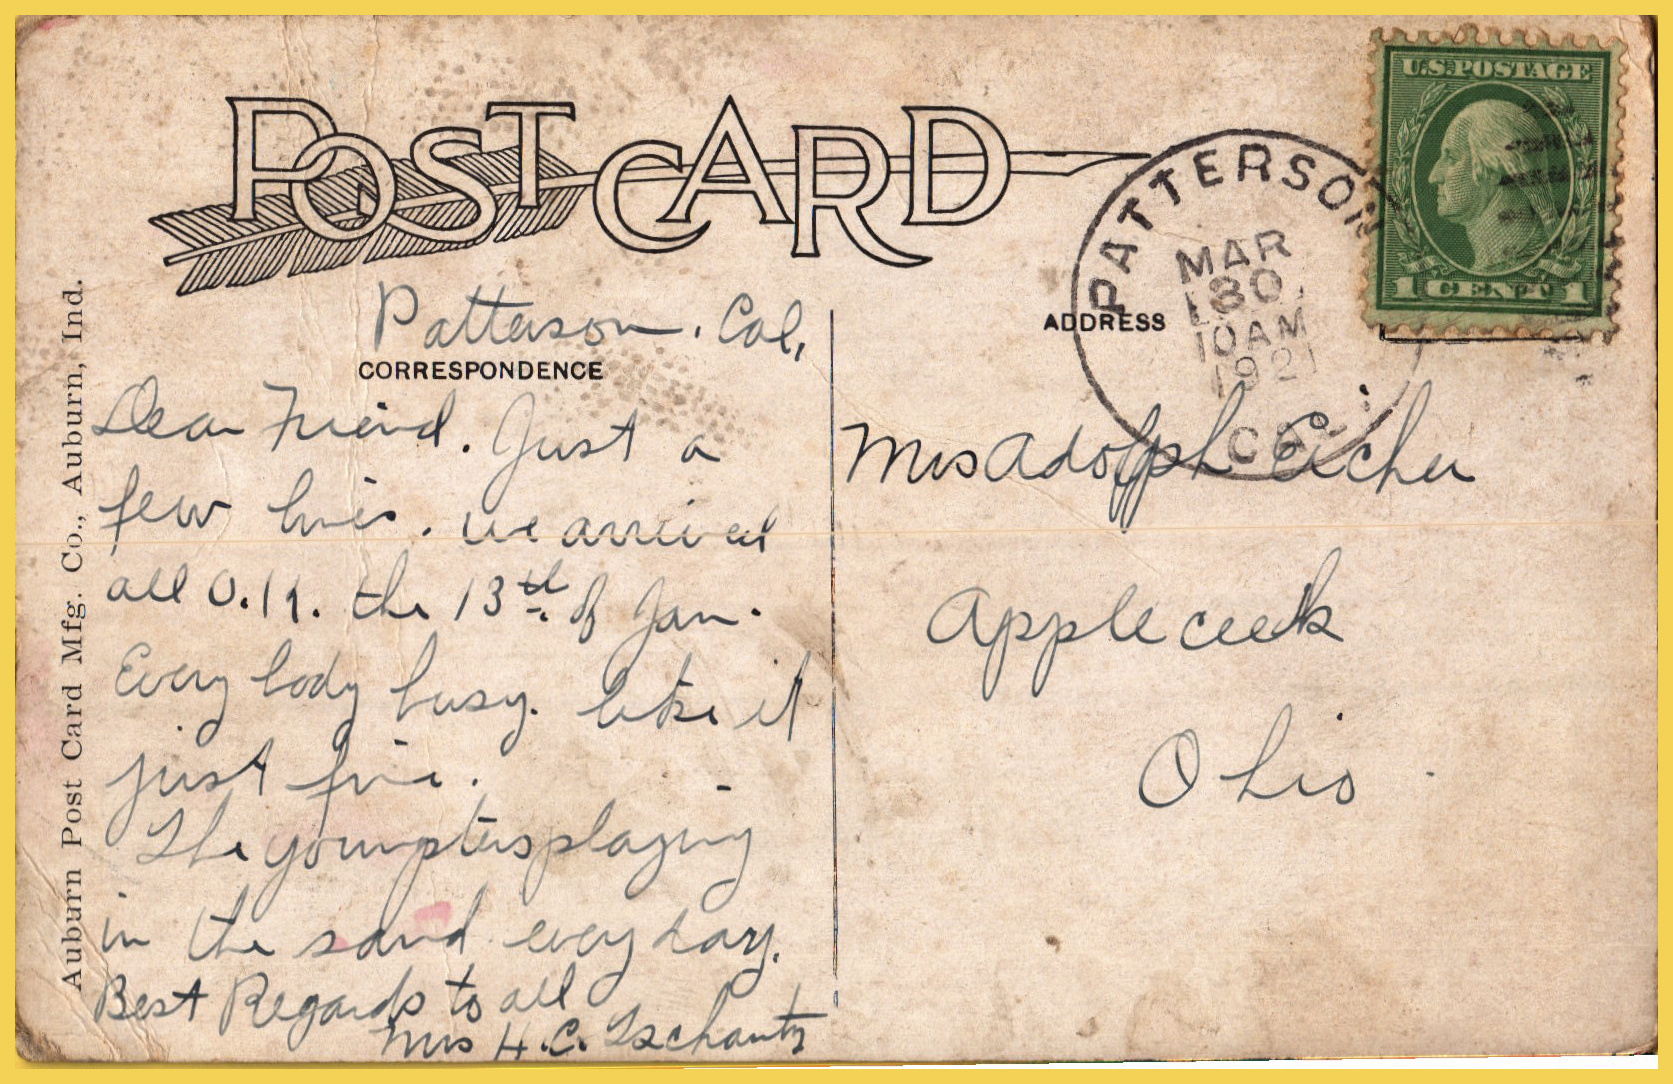 POST CARD
U.S. POSTAGE
1 CENT 1
PATTERSON
MAR
30
10 AM
1921
CAL.
Patterson, Cal,
CORRESPONDENCE
Dear Friend. Just a
few lines. we arrived
all O.K. the 13th of Jan.
Every body busy. like it
just fine.
The youngsters playing
in the sand every day.
Best Regards to all
Mrs H.C. Tschantz
ADDRESS
Mrs Adolph Eicher
Apple creek
Ohio
Auburn Post Card Mfg. Co., Auburn, Ind.